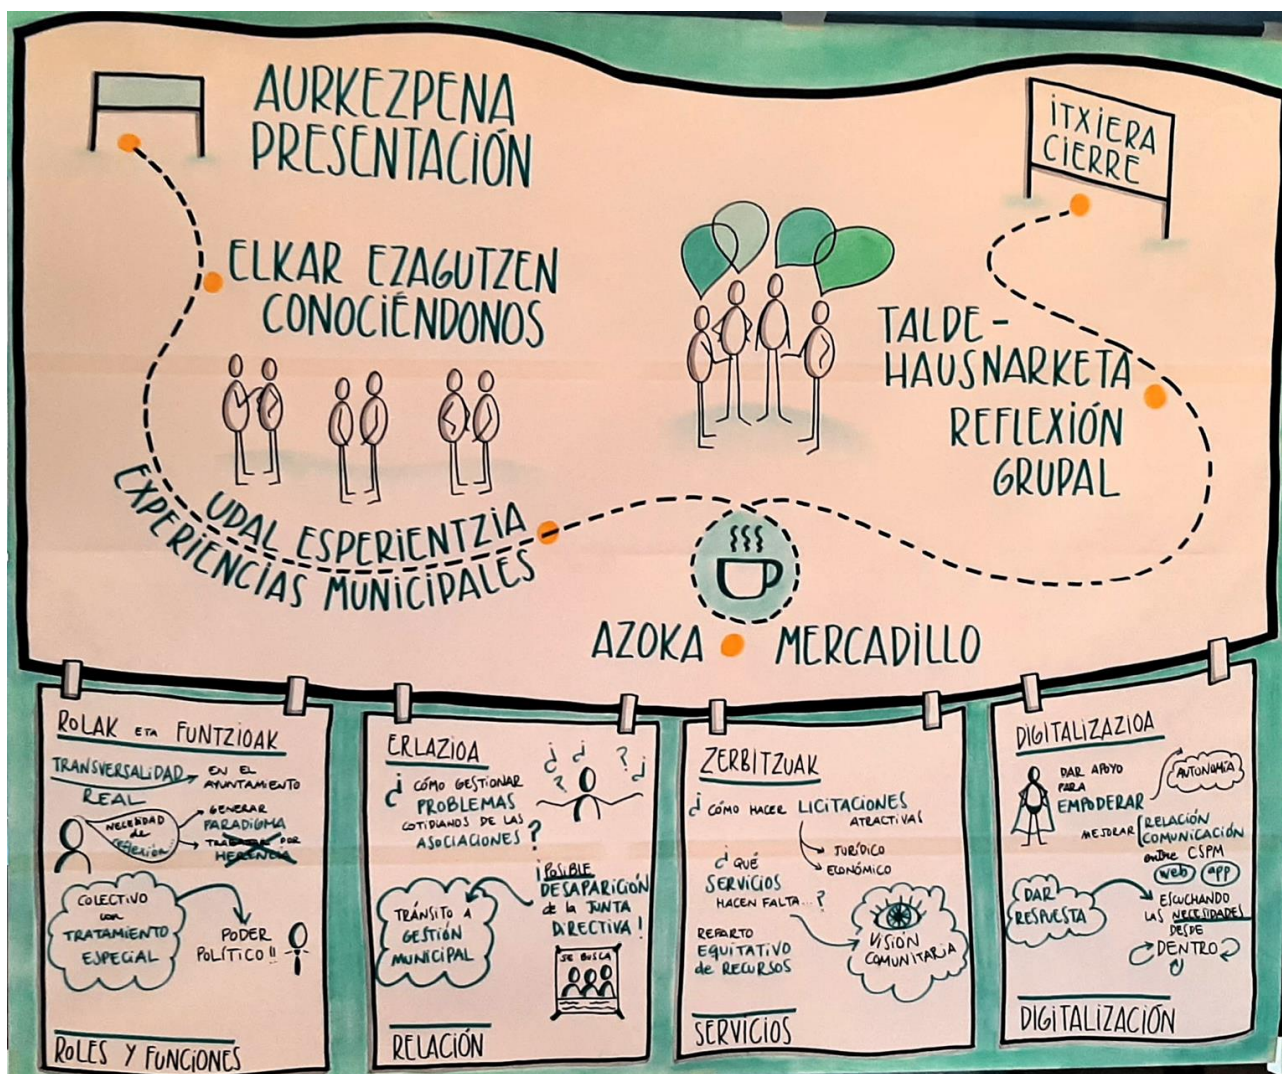 AURKEZPENA
PRESENTACIÓN
ELKAR EZAGUTZEN
CONOCIÉNDONOS
UDAL ESPERIENTZIA
EXPERIENCIAS MUNICIPALES
AZOKA MERCADILLO
TALDE-
HAUSNARKETA
REFLEXIÓN
GRUPAL
ITXIERA
CIERRE
ROLAK ETA FUNTZIOAK
TRANSVERSALIDAD
REAL
EN EL
AYUNTAMIENTO
NECESIDAD
de
reflexión...
GENERAR
PARADIGMA
TRABAJAR POR
HERENCIA
COLECTIVO
con
TRATAMIENTO
ESPECIAL
PODER
POLÍTICO!!
ROLES Y FUNCIONES
ERLAZIOA
¿CÓMO GESTIONAR
PROBLEMAS
COTIDIANOS DE LAS
ASOCIACIONES?
¿ ¿ ? ? ¿
¡POSIBLE
DESAPARICIÓN
de la JUNTA
DIRECTIVA!
TRÁNSITO A
GESTIÓN
MUNICIPAL
SE BUSCA
RELACIÓN
ZERBITZUAK
¿CÓMO HACER LICITACIONES
ATRACTIVAS
JURÍDICO
ECONÓMICO
¿QUÉ
SERVICIOS
HACEN FALTA...?
VISIÓN
COMUNITARIA
REPARTO
EQUITATIVO
de RECURSOS
SERVICIOS
DIGITALIZAZIOA
DAR APOYO
PARA
EMPODERAR
AUTONOMÍA
MEJORAR [RELACIÓN
COMUNICACIÓN
entre CSPM
web app
DAR
RESPUESTA
ESCUCHANDO
LAS NECESIDADES
DESDE
DENTRO
DIGITALIZACIÓN